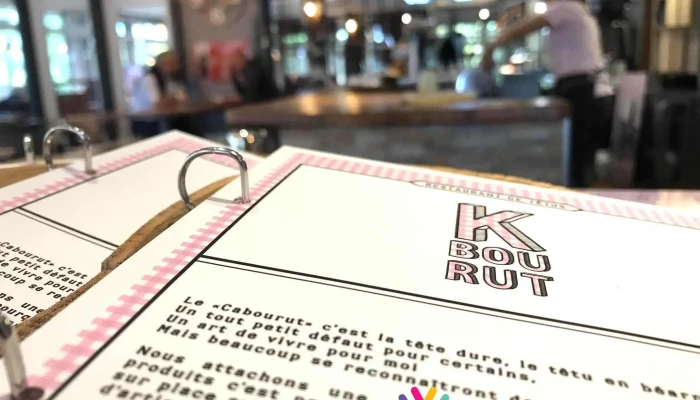 RESTAURANT DE TÊTUS
K
BOU
RUT
Le «Cabourut» c'est la tête dure, le têtu en béar
Un tout petit défaut pour certains,
Un art de vivre pour moi
Mais beaucoup se reconnaîtront d
Nous attachons une
produits c'est po
sur place
d'arti
Cabourut» c'est
t petit défaut
de vivre pour
coup se re